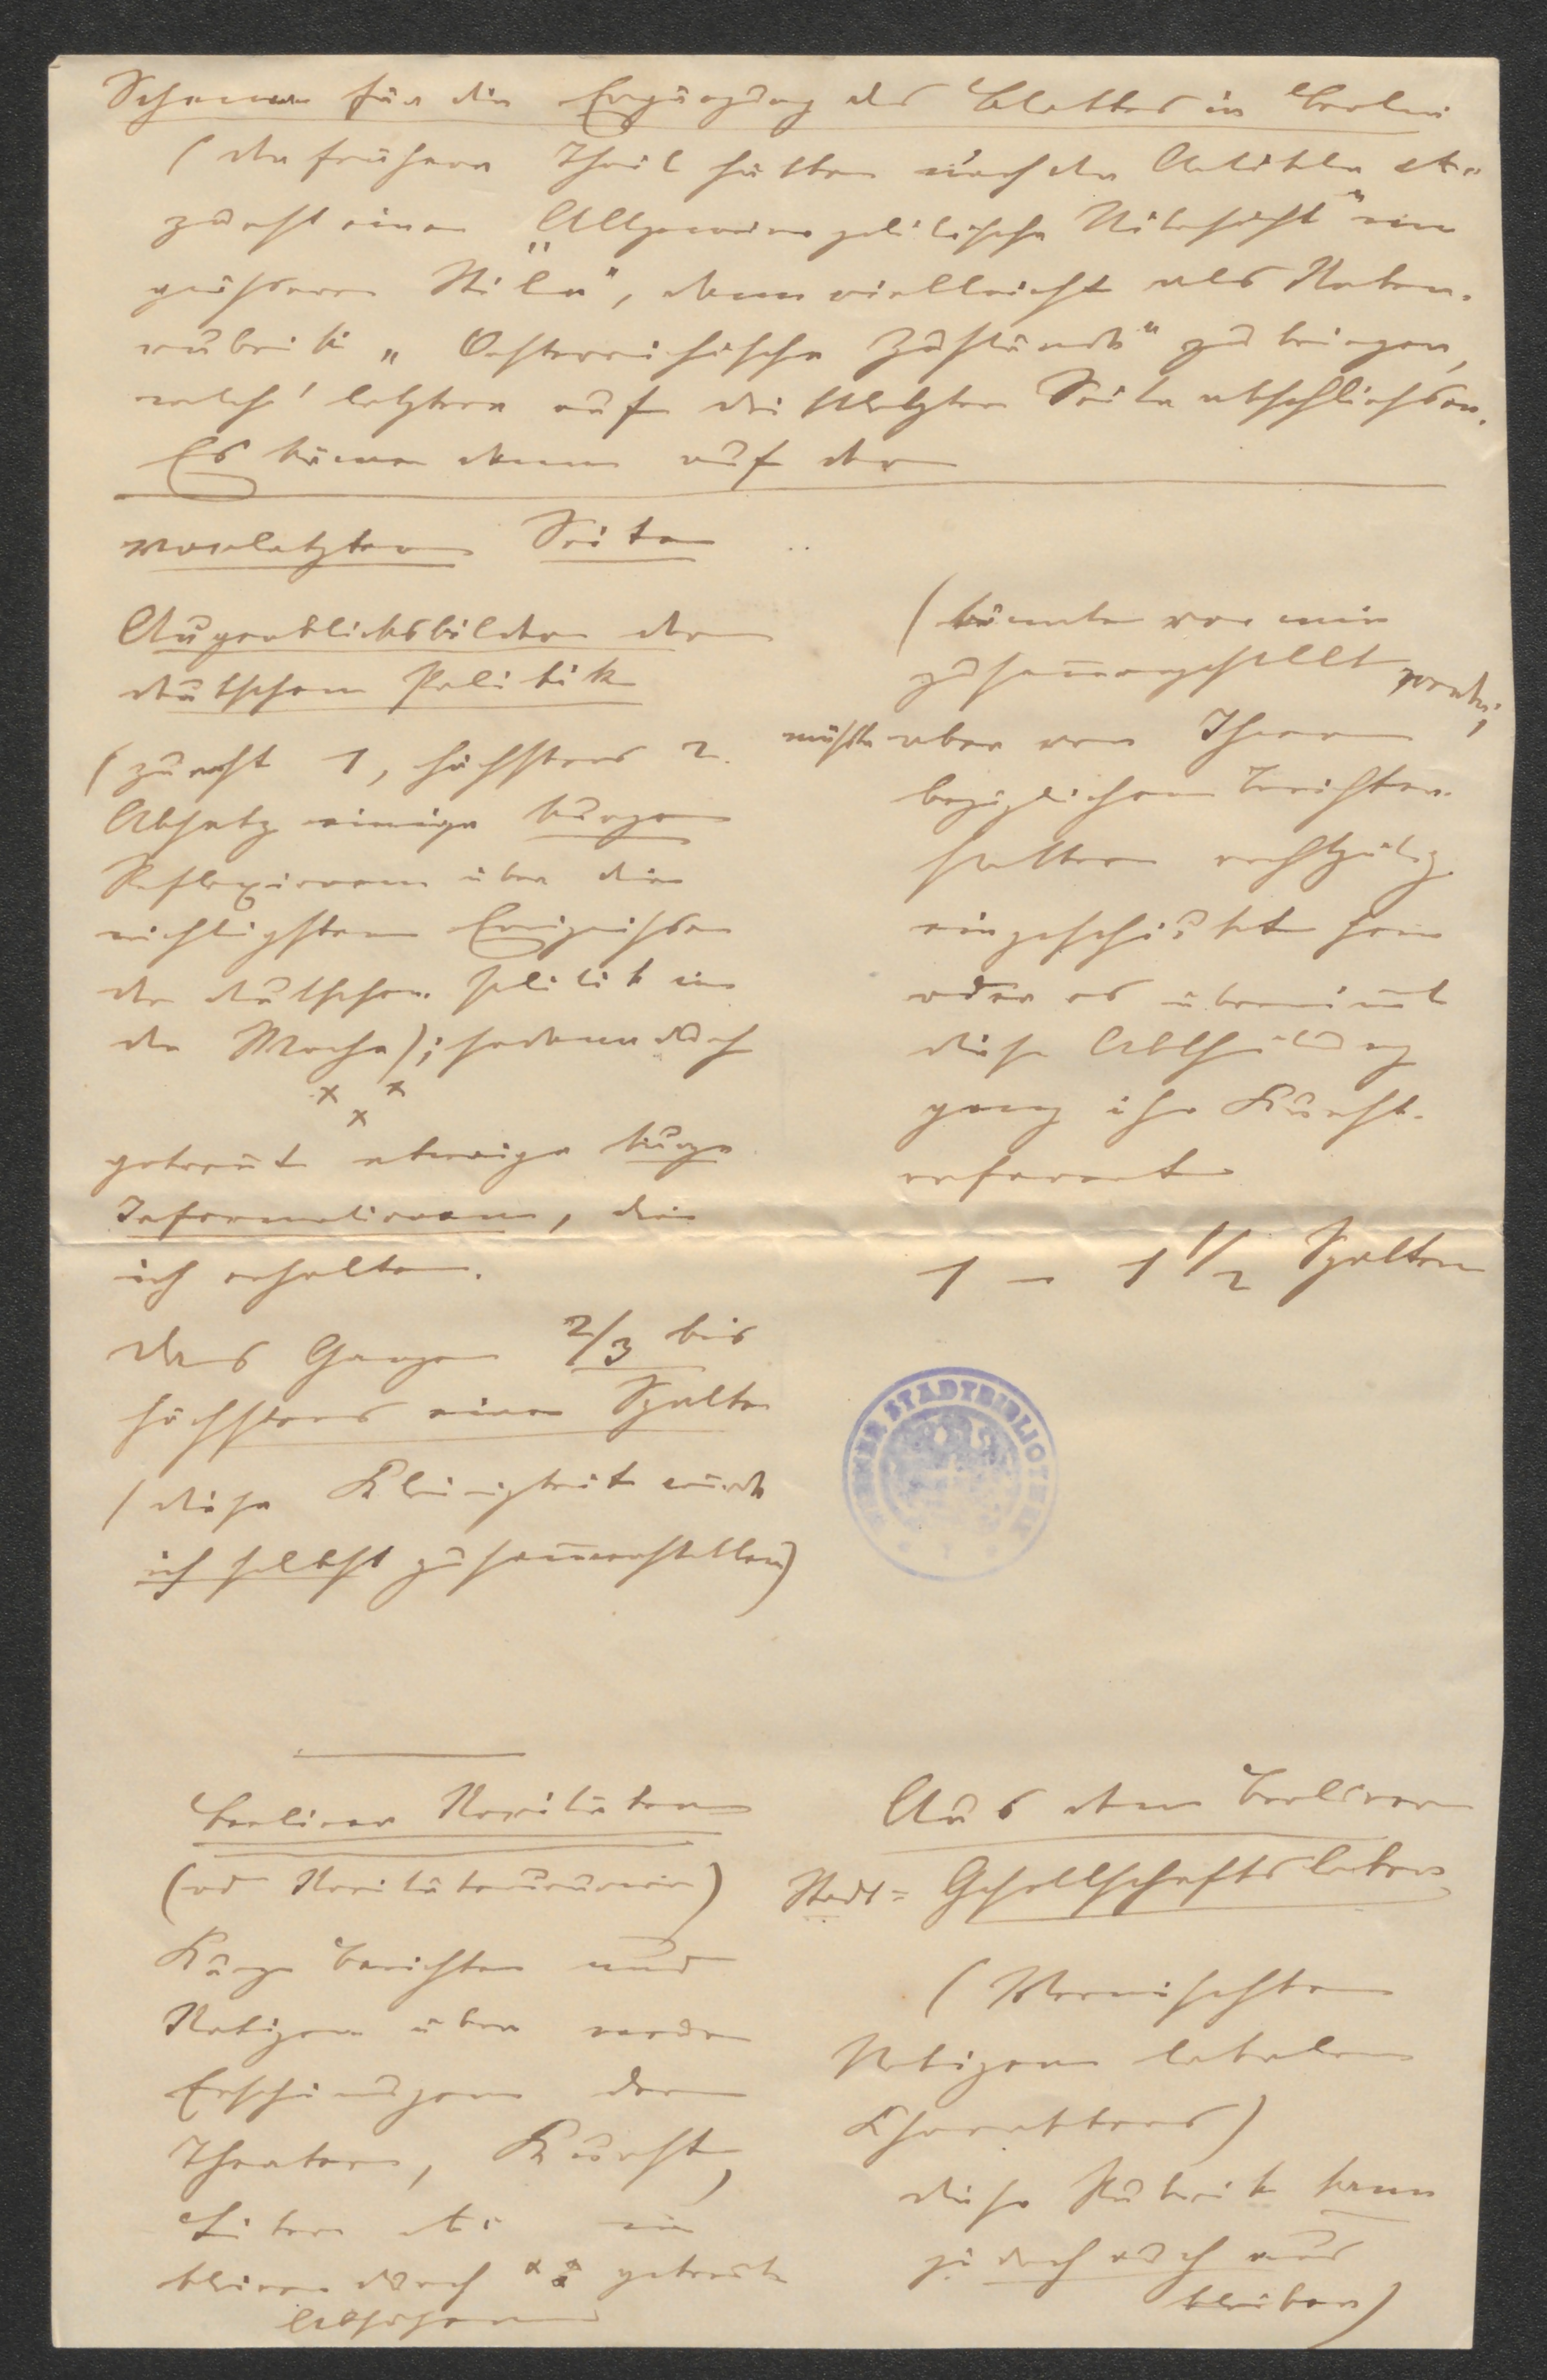 Schema für die Ergänzung des Blattes in Berlin
(der frühere Theil hätte nach den Artikeln etc.
zunächst eine „Allgemeine politische Uebersicht" im
größeren Stile", dann vielleicht als Neben-
rubrik „Oesterreichische Zustände" zu bringen,
welch' letztere auf der letzten Seite abschließen.
Es käme dann auf der
vorletzten Seite
Augenblicksbilder der
deutschen Politik
(zuerst 1, höchstens 2
Absatz einige kurze
Reflexionen über die
wichtigsten Ereignisse
der deutschen Politik in
der Woche); sodann durch
x x
x
getrennt etwaige kurze
Informationen, die
ich erhalte.
Das Ganze 2/3 bis
höchstens eine Spalte
(diese Kleinigkeit würde
ich selbst zusammenstellen)
(könnte von mir
zusammengestellt werden;
müßte aber von Ihren
bezüglichen Berichter-
stattern rechtzeitig
eingeschickt sein
oder es übernimmt
diese Abtheilung
ganz ihr Kunst-
referent
1 – 1 1/2 Spalten
WIENER STADTBIBLIOTHEK
Berliner Novitäten
(od Novitätenrevue)
Kurze Berichte und
Notizen über neue
Erscheinungen der
Theater, Kunst,
Liter. etc. in
kleinen durch x x x getrennte
Absätzen
Aus dem Berliner
Stadt= Gesellschaftsleben
(Vermischte
Notizen lokalen
Charakters)
diese Rubrik kann
jedoch auch aus
bleiben)